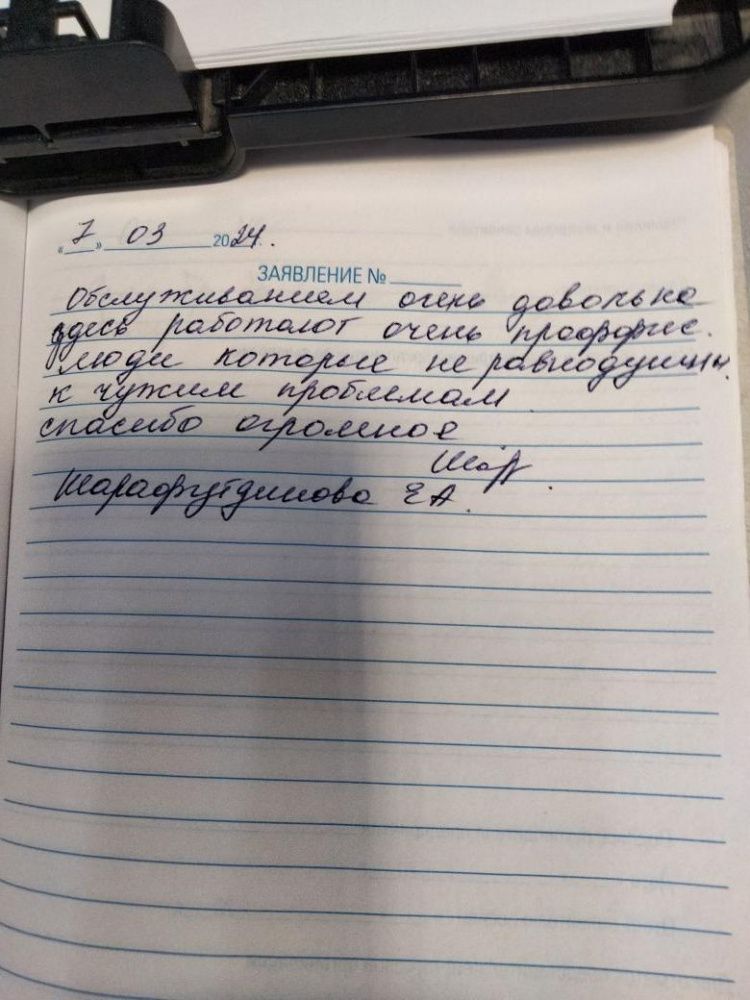 «7» 03 2024.
ЗАЯВЛЕНИЕ №
Обслуживанием очень довольна
здесь работают очень проффес.
люди которые не равнодушны
к чужим проблемам
спасибо огромное
Шарафутдинова Е А.